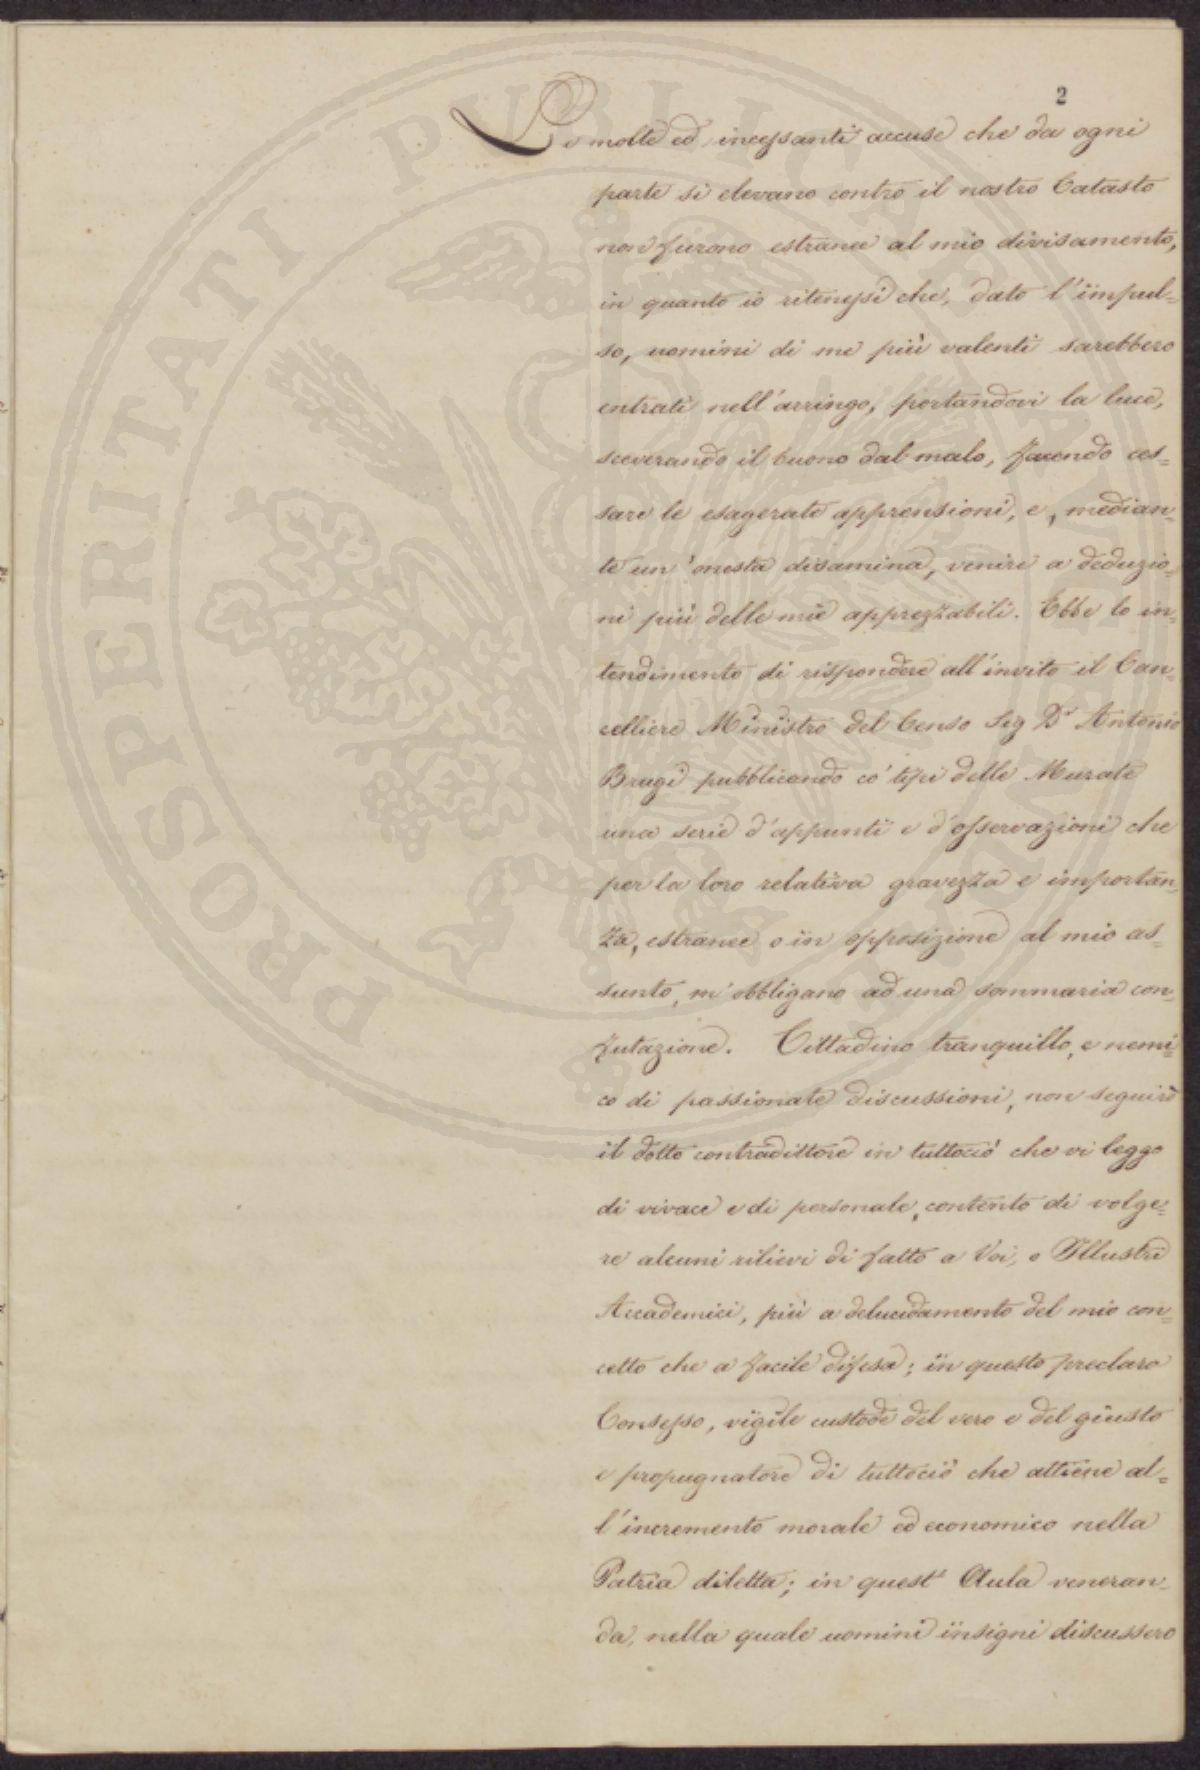 2
Le molte ed incessanti accuse che da ogni
parte si elevano contro il nostro Catasto
non furono estranee al mio divisamento,
in quanto io ritenessi che, dato l'impul=
so, uomini di me più valenti sarebbero
entrati nell'arringo, portandovi la luce,
sceverando il buono dal malo, facendo ces=
sare le esagerate apprensioni, e, median=
te un'onesta disamina, venire a deduzio=
ni più delle mie apprezzabili. Ebbe lo in=
tendimento di rispondere all'invito il Can=
celliere Ministro del Censo Sig Dr Antonio
Brugi pubblicando co' tipi delle Murate
una serie d'appunti e d'osservazioni che
per la loro relativa gravezza e importan=
za, estranee o in opposizione al mio as=
sunto, m'obbligano ad una sommaria con=
futazione. Cittadino tranquillo, e nemi=
co di passionate discussioni, non seguirò
il dotto contradittore in tuttociò che vi leggo
di vivace e di personale, contento di volge=
re alcuni rilievi di fatto a Voi, o Illustri
Accademici, più a delucidamento del mio con=
cetto che a facile difesa; in questo preclaro
Consesso, vigile custode del vero e del giusto
e propugnatore di tuttociò che attiene al=
l'incremento morale ed economico nella
Patria diletta; in quest'Aula veneran=
da, nella quale uomini insigni discussero
PROSPERITATI PUBLICAE